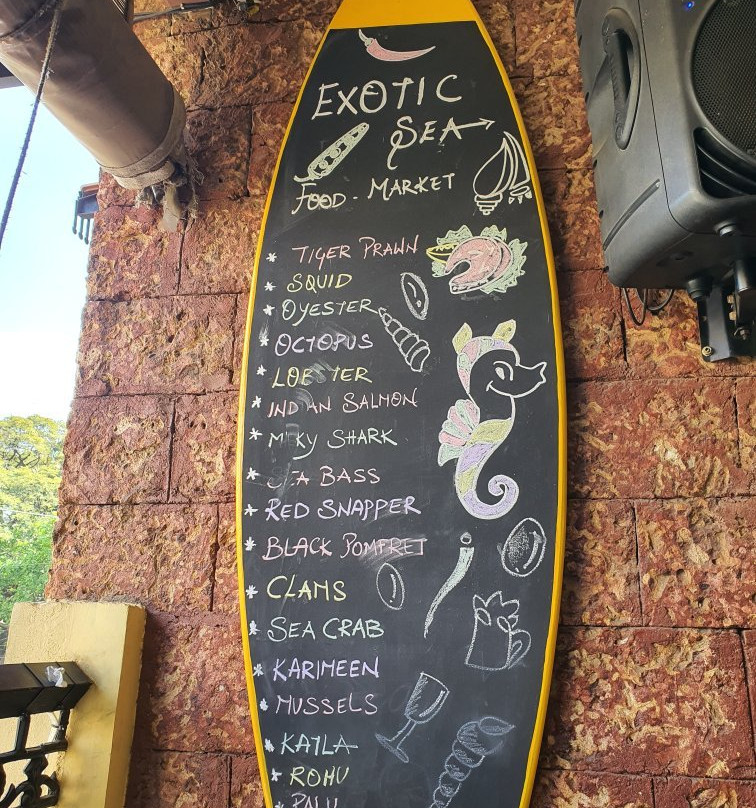 EXOTIC
SEA
FOOD - MARKET
* TIGER PRAWN
* SQUID
* OYESTER
* OCTOPUS
* LOBSTER
* INDIAN SALMON
* MILKY SHARK
* SEA BASS
* RED SNAPPER
* BLACK POMFRET
* CLAMS
* SEA CRAB
* KARIMEEN
* MUSSELS
* KATLA
* ROHU